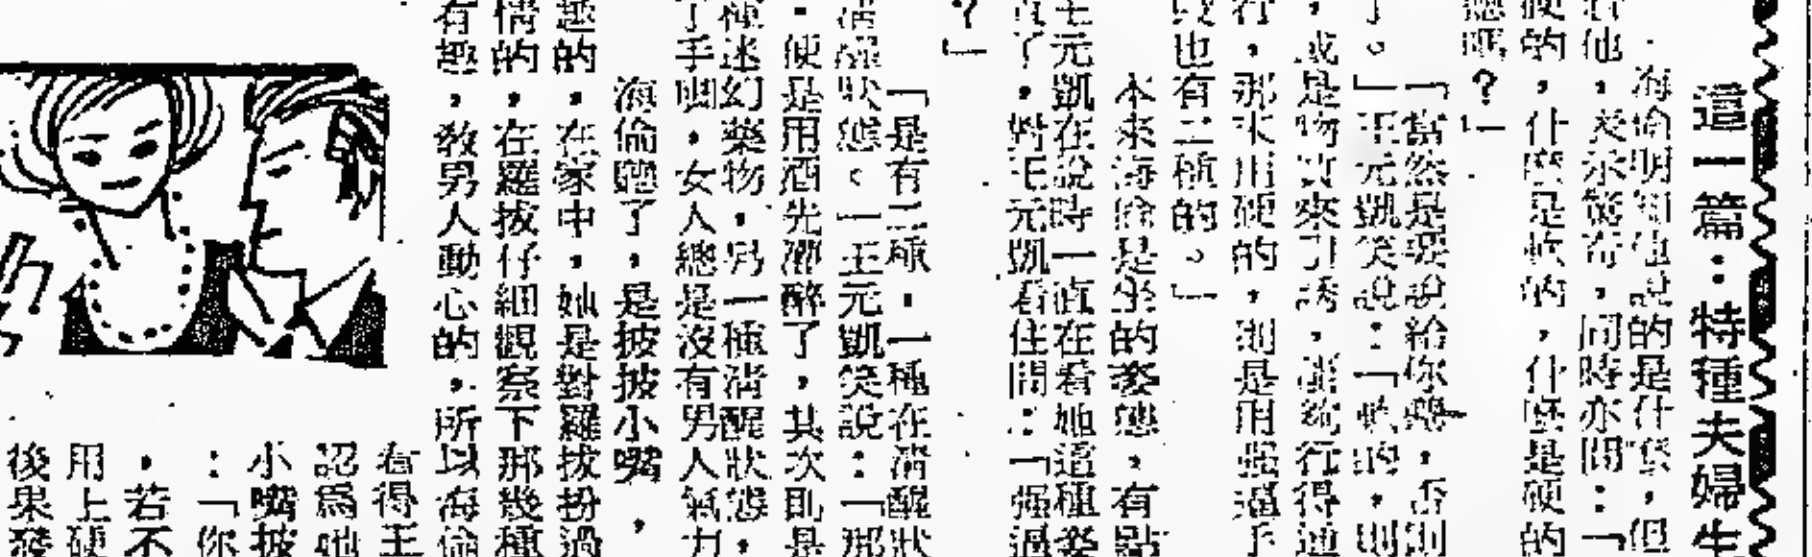 這一篇：特種夫婦生
海倫明知他說的是什麼，但
他，表示驚奇，同時亦問：「
硬的，什麼是軟的，什麼是硬的
嗎？」
「當然是要說給你聽，否則
了。」王元凱笑說：「軟的，則
，或是物質來引誘，行得通
行，那末用硬的，則是用强逼手
段也有二種的。」
本來海倫是坐的姿態，有點
王元凱在說時一直在看她這種姿
了，對王元凱看住問：「强逼
？」
「是有二種，一種在清醒狀
清醒狀態。」王元凱笑說：「那
，便是用酒先灌醉了，其次則是
種迷幻藥物，另一種清醒狀態，
了手啦，女人總是沒有男人氣力
海倫聽了，是披披小嘴，
趣的，在家中，她是對羅拔扮過
情的，在羅拔仔細觀察下那幾種
有趣，教男人動心的，所以海倫
看得王
認爲她
小嘴披
：「你
，若不
用上硬
後果發